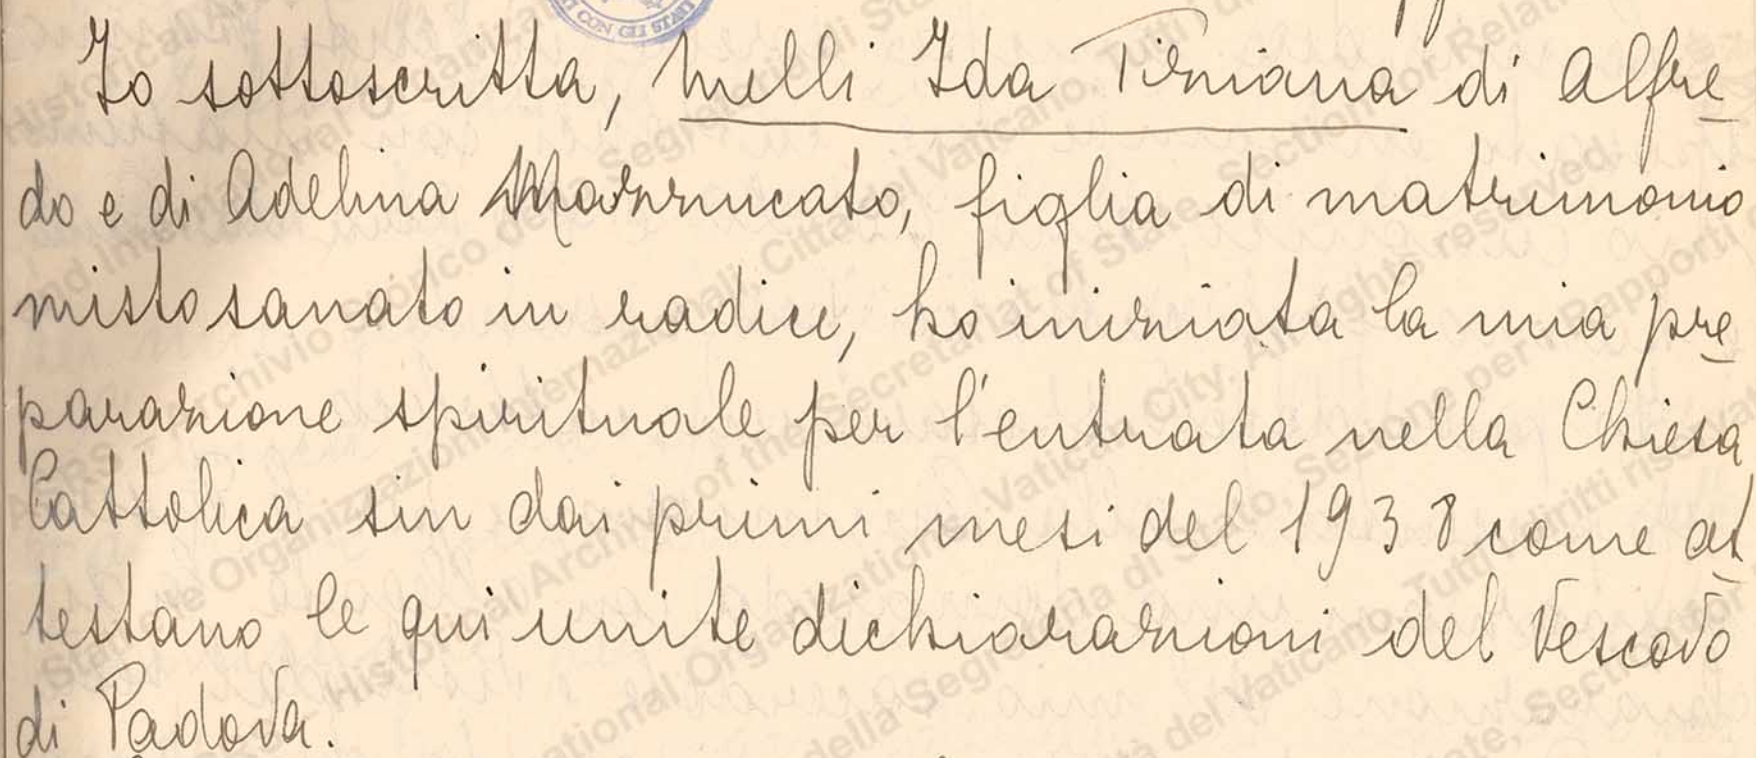 CON GLI STATI
Io sottoscritta, Melli Ida Tiziana di Alfre
do e di Adelina Mazzucato, figlia di matrimonio
misto sanato in radice, ho iniziata la mia pre
parazione spirituale per l'entrata nella Chiesa
Cattolica sin dai primi mesi del 1938 come at
testano le qui unite dichiarazioni del Vescovo
di Padova.